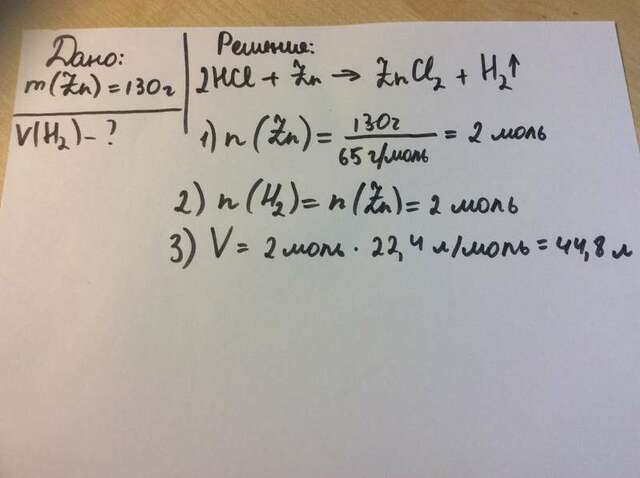 Дано:
m(Zn) = 130г
V(H₂) - ?
Решение:
2HCl + Zn → ZnCl₂ + H₂↑
1) n(Zn) = 130г / 65 г/моль = 2 моль
2) n(H₂) = n(Zn) = 2 моль
3) V = 2 моль · 22,4 л/моль = 44,8 л